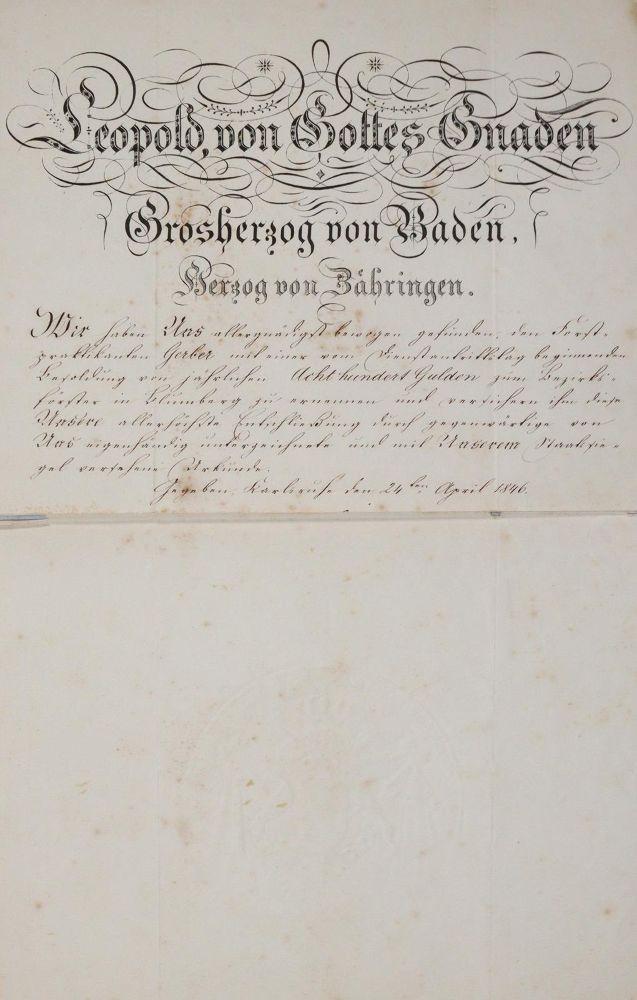 Leopold, von Gottes Gnaden
Grosherzog von Baden,
Herzog von Zähringen.
Wir haben Uns allergnädigst bewogen gefunden, den Forst-
praktikanten Gerber mit einer vom Dienstantrittstag beginnenden
Besoldung von jährlichen Acht hundert Gulden zum Bezirks-
förster in Blumberg zu ernennen und versichern ihm diese
Unsere allerhöchste Entschließung durch gegenwärtige von
Uns eigenhändig unterzeichnete und mit Unserem Staatssie-
gel versehene Urkunde.
Gegeben, Karlsruhe den 24ten April 1846.